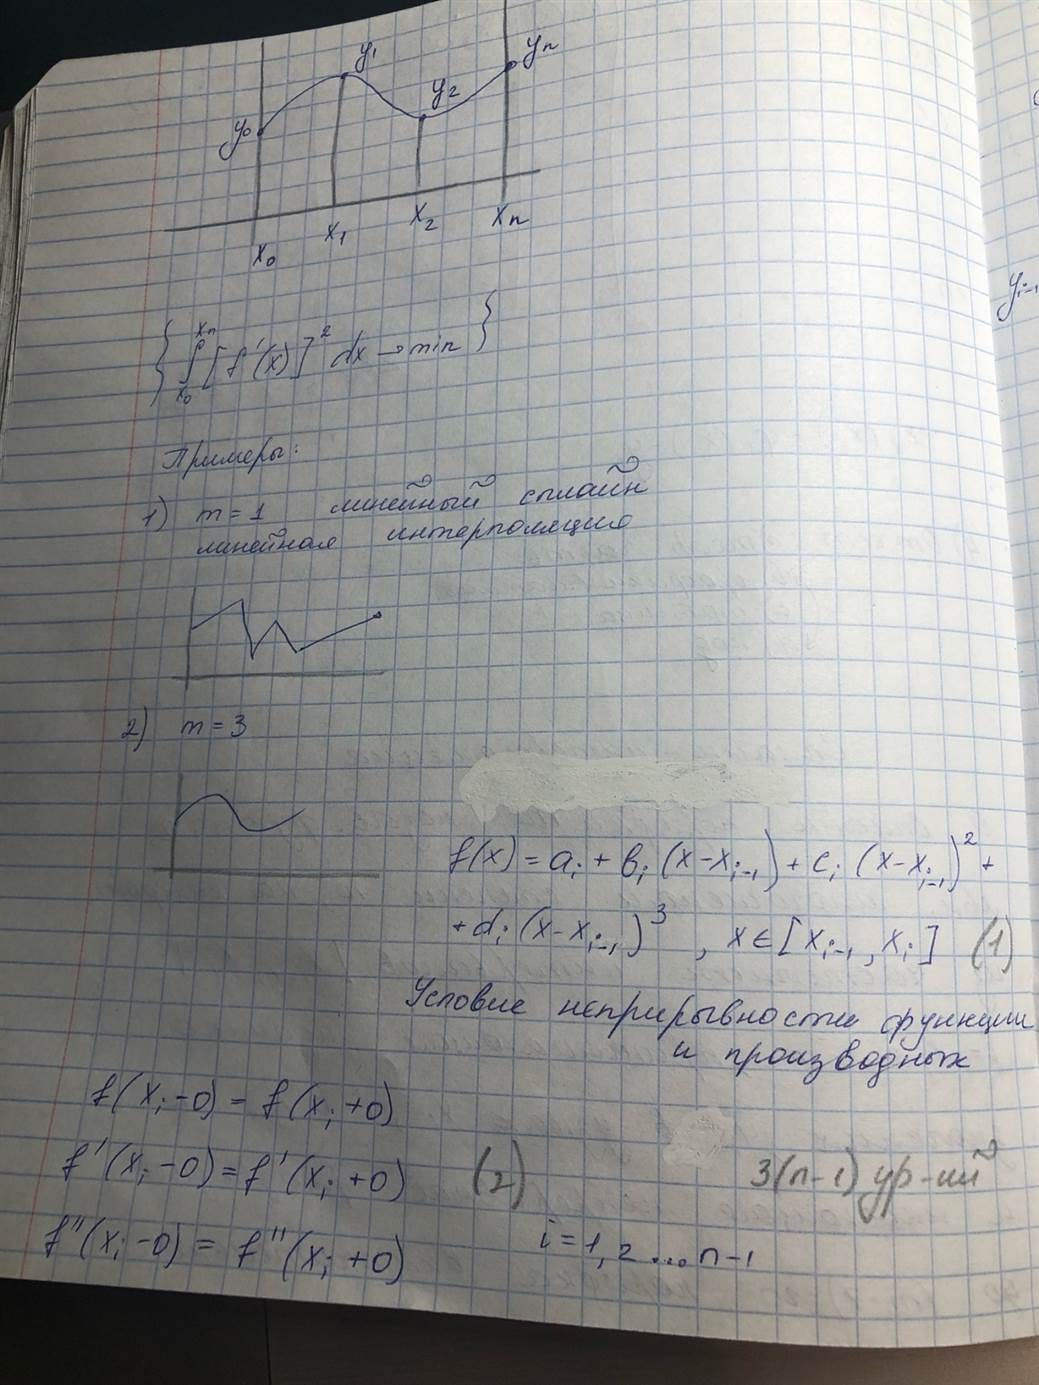 y₀ y₁ y₂ yₙ
x₀ x₁ x₂ xₙ
{ ∫ₓ₀ˣⁿ [f'(x)]² dx → min }
Примеры:
1) m = 1 линейный сплайн
линейная интерполяция
2) m = 3
f(x) = aᵢ + bᵢ (x-xᵢ₋₁) + cᵢ (x-xᵢ₋₁)² +
+ dᵢ (x-xᵢ₋₁)³ , x ∈ [xᵢ₋₁, xᵢ] (1)
Условие неприрывности функции
и производных
f(xᵢ-0) = f(xᵢ+0)
f'(xᵢ-0) = f'(xᵢ+0) (2) 3(n-1) ур-ий
f''(xᵢ-0) = f''(xᵢ+0) i = 1, 2 ... n-1
yᵢ₋₁